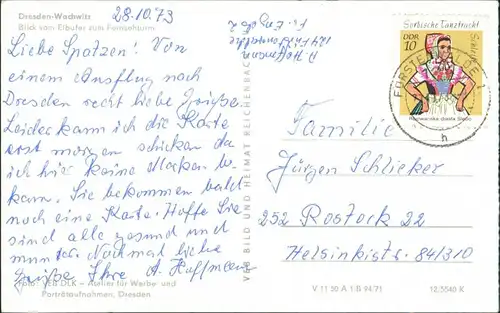 Dresden-Wachwitz
Blick vom Elbufer zum Fernsehturm
28.10.73
Liebe Spatzen! Von
einem Ausflug nach
Dresden recht liebe Grüße.
Leider kann ich die Karte
erst morgen schicken da
ich hier keine Marken be-
kam. Sie bekommen bald
noch eine Karte. Hoffe Sie
sind alle gesund und
munter. Nochmal liebe
Grüße Ihre A. Hoffmann
Foto: VEB DLK – Atelier für Werbe- und
Porträtaufnahmen, Dresden
A. Hoffmann
124 Fürstenwalde
VEB BILD UND HEIMAT REICHENBACH
Sorbische Tanztracht
DDR
10
FÜRSTENWALDE 1
h
Familie
Jürgen Schlieker
252 Rostock 22
Helsinkistr. 84/310
V 11 50 A 1/B 94/71
12/5540 K